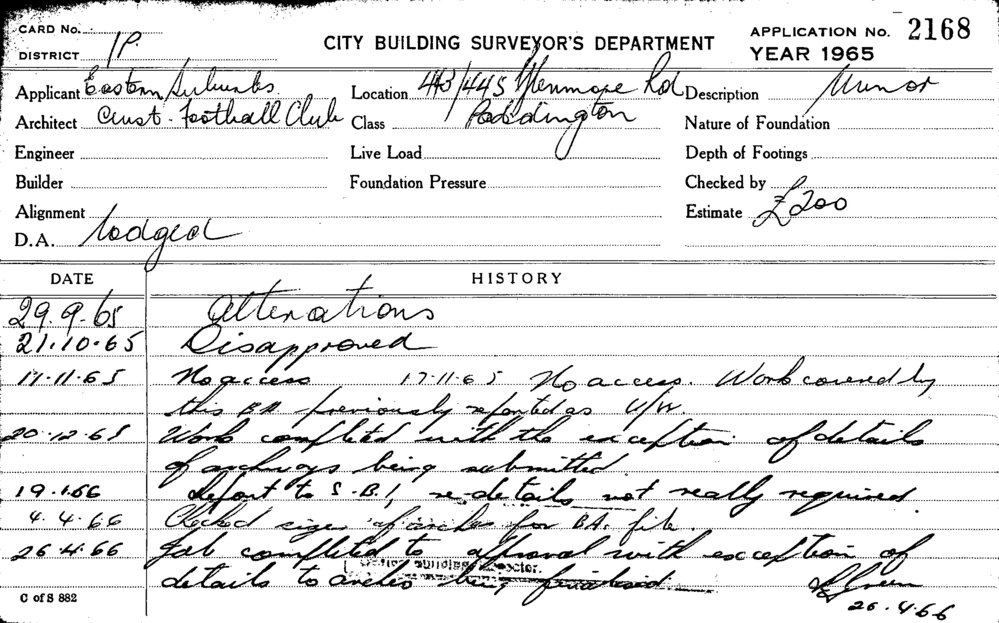 CARD No.
DISTRICT 1P.
CITY BUILDING SURVEYOR'S DEPARTMENT
APPLICATION No. 2168
YEAR 1965
Applicant Eastern Suburbs
Location 443/445 Glenmore Rd
Description Minor
Architect Aust. Football Club
Class Paddington
Nature of Foundation
Engineer
Live Load
Depth of Footings
Builder
Foundation Pressure
Checked by
Alignment
Estimate £200
D.A. lodged
DATE HISTORY
29.9.65 Alterations
21.10.65 Disapproved
11.11.65 No access 17.11.65 No access. Work covered by
this BA previously reported as U/W.
20.12.65 Work completed with the exception of details
of archways being submitted.
19.1.66 Report to S.B.I, re details not really required
4.4.66 Checked sizes of arches for BA. file.
26.4.66 Job completed to approval with exception of
details to arches being finalised.
Building
Green
26.4.66
C of S 882